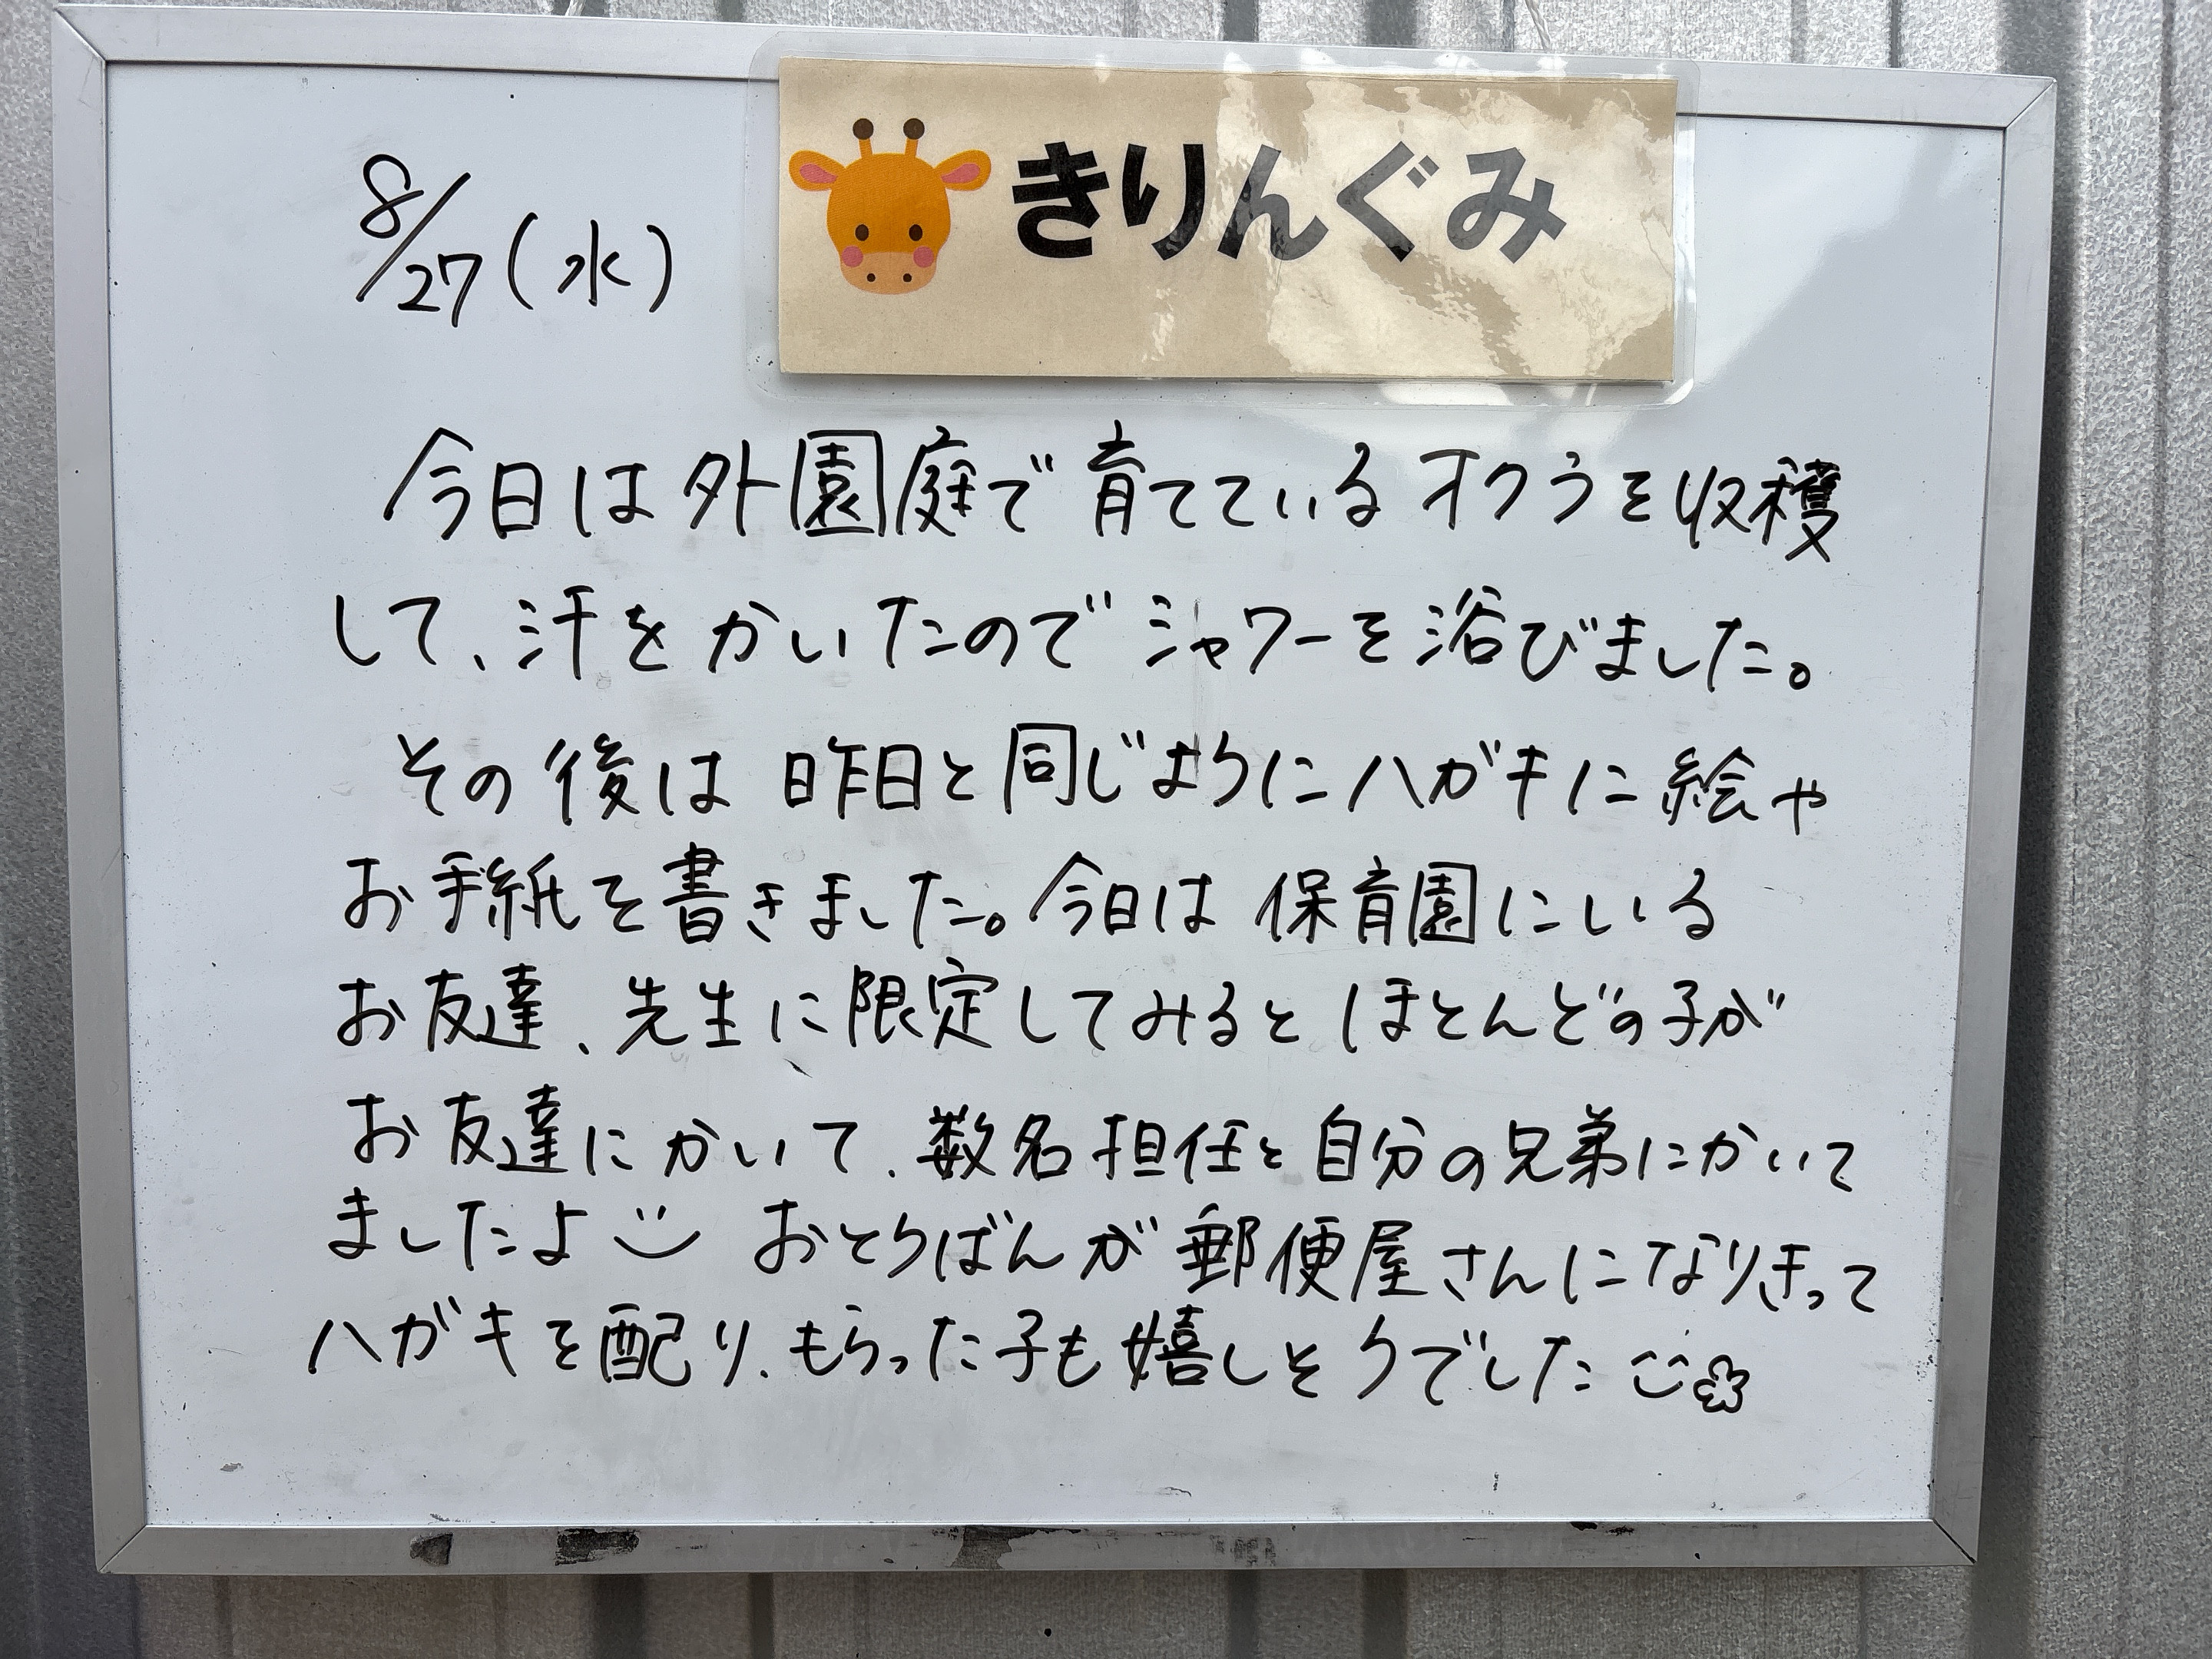 きりんぐみ
8/27(水)
今日は外園庭で育てているオクラを収穫
して、汗をかいたのでシャワーを浴びました。
その後は昨日と同じようにハガキに絵や
お手紙を書きました。今日は保育園にいる
お友達、先生に限定してみるとほとんどの子が
お友達にかいて、数名担任と自分の兄弟にかいて
ましたよ おとうばんが郵便屋さんになりきって
ハガキを配り、もらった子も嬉しそうでした